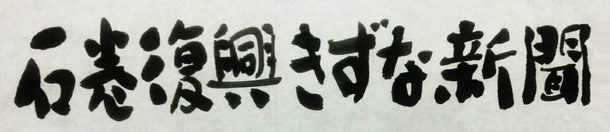 石巻復興きずな新聞